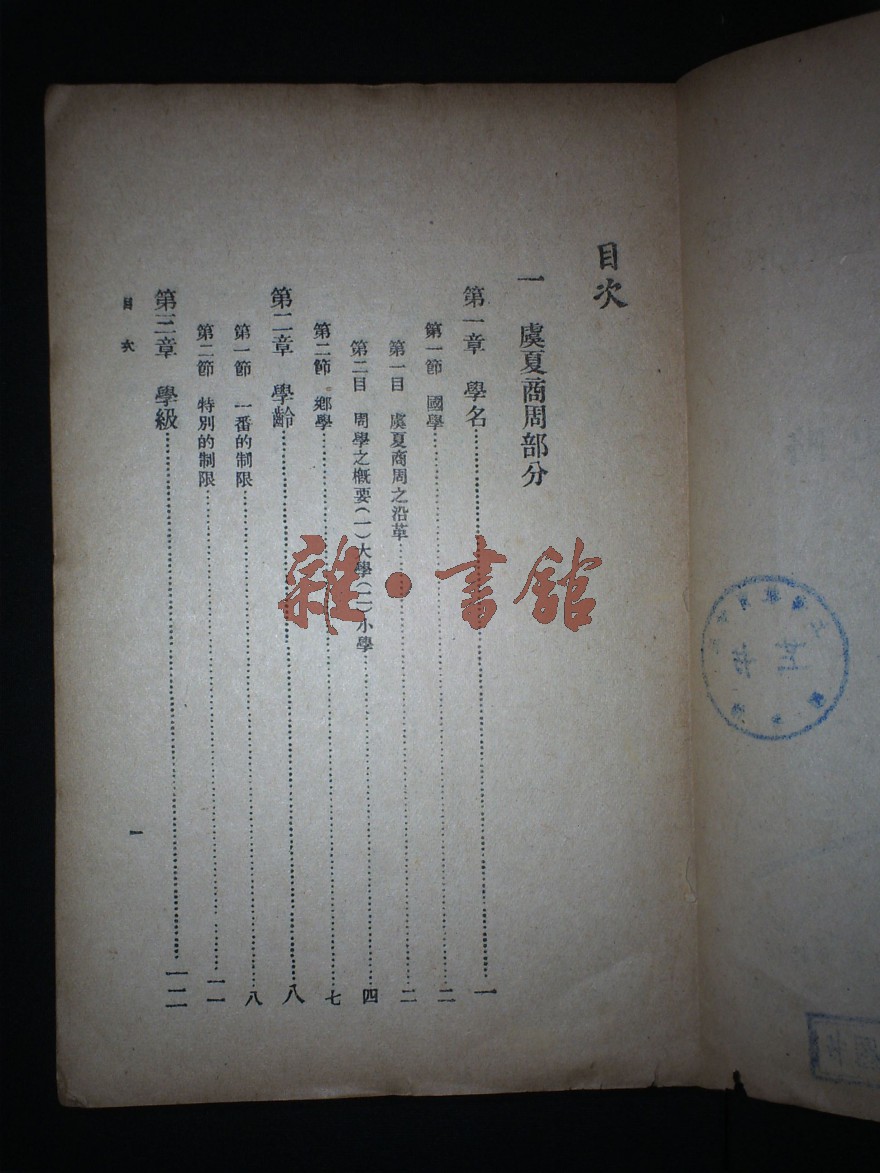 目次
一　虞夏商周部分
第一章　學名……一
第一節　國學……二
第一目　虞夏商周之沿革……二
第二目　周學之概要(一)大學(二)小學……四
第二節　鄉學……七
第二章　學齡……八
第一節　一番的制限……八
第二節　特別的制限……一一
第三章　學級……一二
目次
一
雜·書館